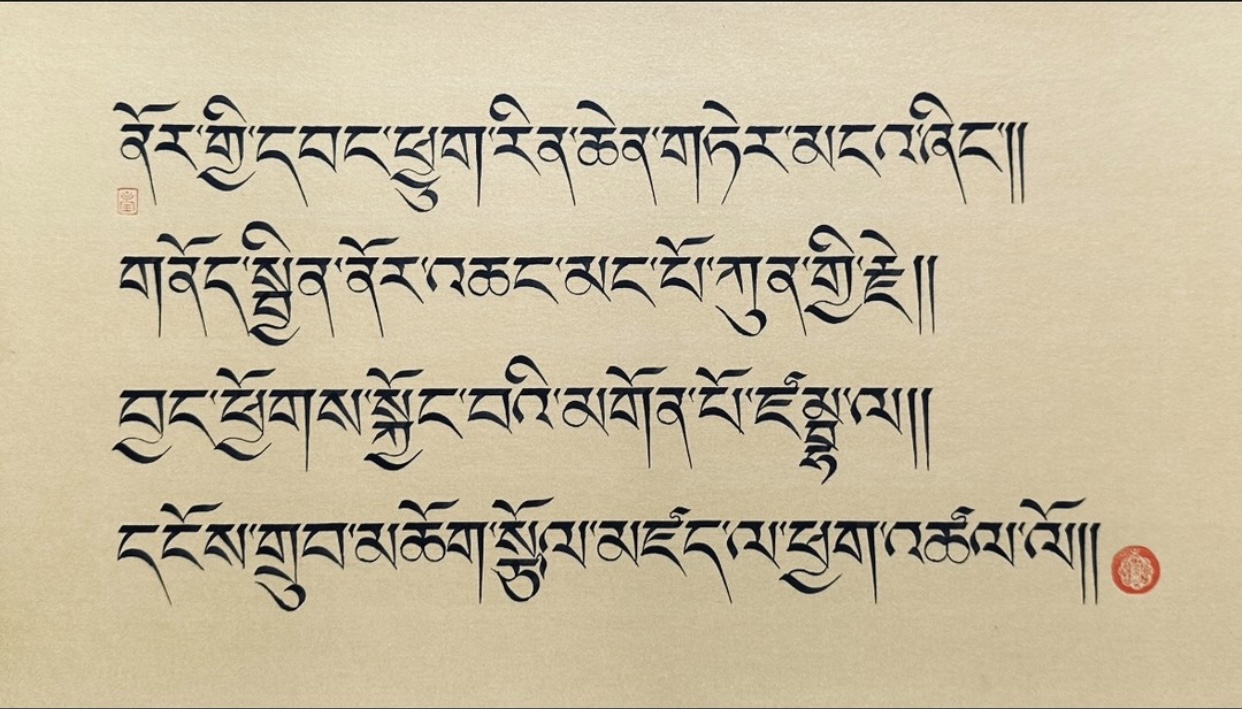 ནོར་གྱི་དབང་ཕྱུག་རིན་ཆེན་གཏེར་མངའ་ཞིང་།།
གནོད་སྦྱིན་ནོར་འཆང་མང་པོ་ཀུན་གྱི་རྗེ།།
བྱང་ཕྱོགས་སྐྱོང་བའི་མགོན་པོ་ཛམྦྷ་ལ།།
དངོས་གྲུབ་མཆོག་སྩོལ་མཛད་ལ་ཕྱག་འཚལ་ལོ།།